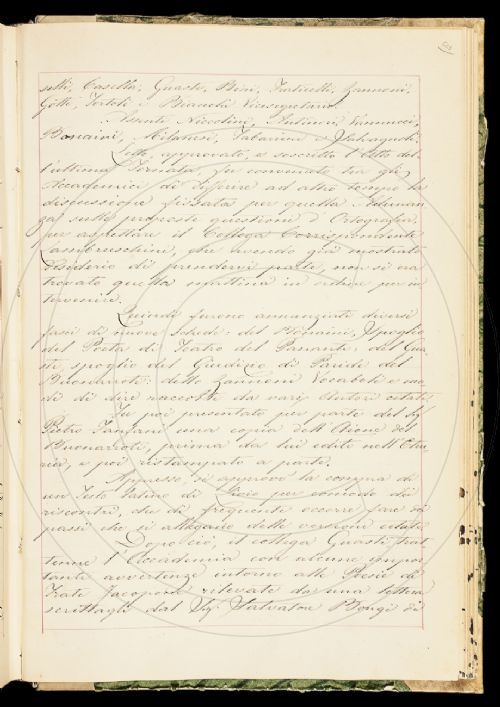 setti, Casella, Guasti, Bini, Turticelli, Zannoni,
Gotti, Tortoli e Bianchi Vicesegretario.
Assenti Nicolini, Antinori, Vannucci,
Bonaini, Milanesi, Tabarrini e Salvagnoli.
Letto, approvato, e soscritto l'Atto del-
l'ultima Tornata, fu convenuto tra gli
Accademici di differire ad altro tempo la
discussione fissata per questa Adunan
za sulle proposte questioni d'Ortografia,
per aspettare il Collega Corrispondente
Lambruschini, che avendo già mostrato
desiderio di prendervi parte, non si era
trovato questa mattina in ordine per in
tervenire.
Quindi furono annunziate diversi
fasci di nuove schede: del spoglio
del Poeta di Teatro del Pananti: del Gua
sti, spoglio del Giudizio di Paride del
Buonarroti: dello Zannoni Vocaboli e mo
di di dire raccolti da varj Autori citati.
Fu poi presentato per parte del Sig.
Pietro Fanfani una copia dell'Aione del
Buonarroti, prima da lui edito nell'Etru
ria, e poi ristampato a parte.
Appresso, si approvò la compra di
un Testo latino di Livio per comodo dei
riscontri, che di frequente occorre fare nei
passi che si allegano delle versioni citate.
Dopo ciò, il collega Guasti trat
tenne l'Accademia con alcune impor
tanti avvertenze intorno alle Poesie di
Frate Jacopone rilevate da una lettera
scrittagli dal Sig. Salvatore Bongi di